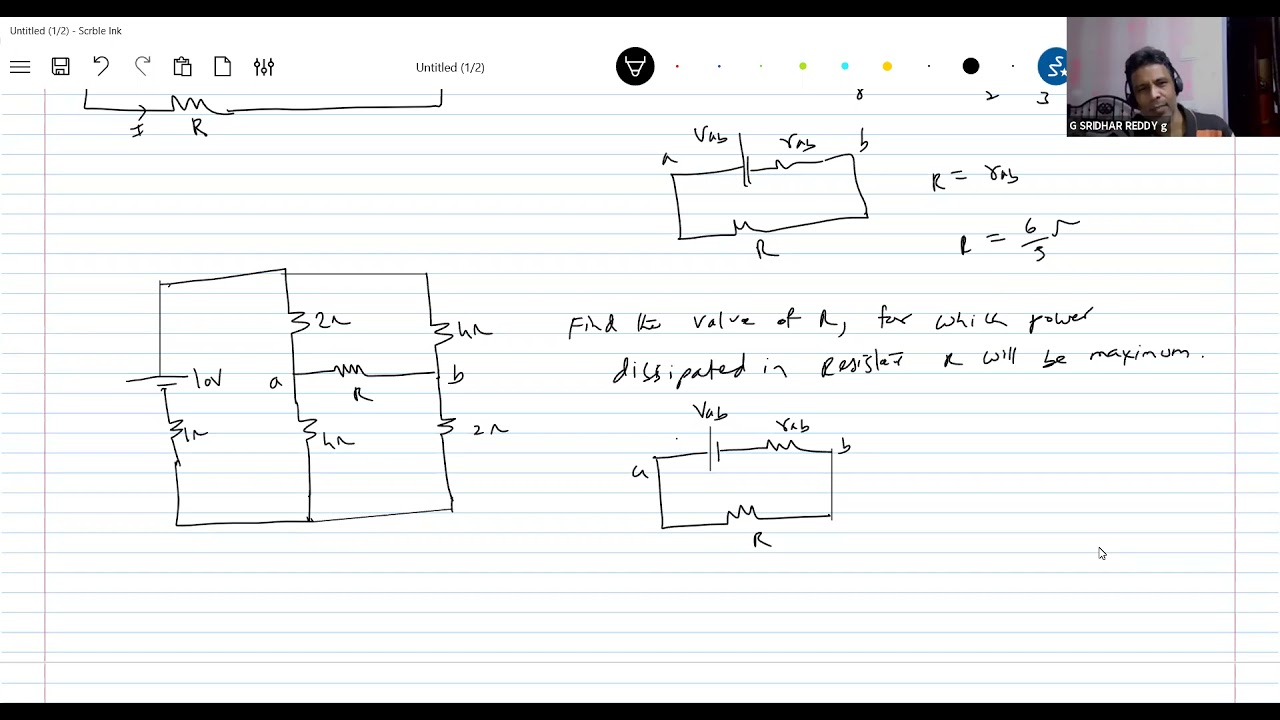 Untitled (1/2) - Scrble Ink
Untitled (1/2)
G SRIDHAR REDDY g
I R
2 3
Vab
a rab b
R
R = rab
R = 6/5 Ω
2Ω 4Ω
10V a R b
1Ω 4Ω 2Ω
Find the value of R, for which power
dissipated in Resistor R will be maximum.
Vab
rab
a b
R